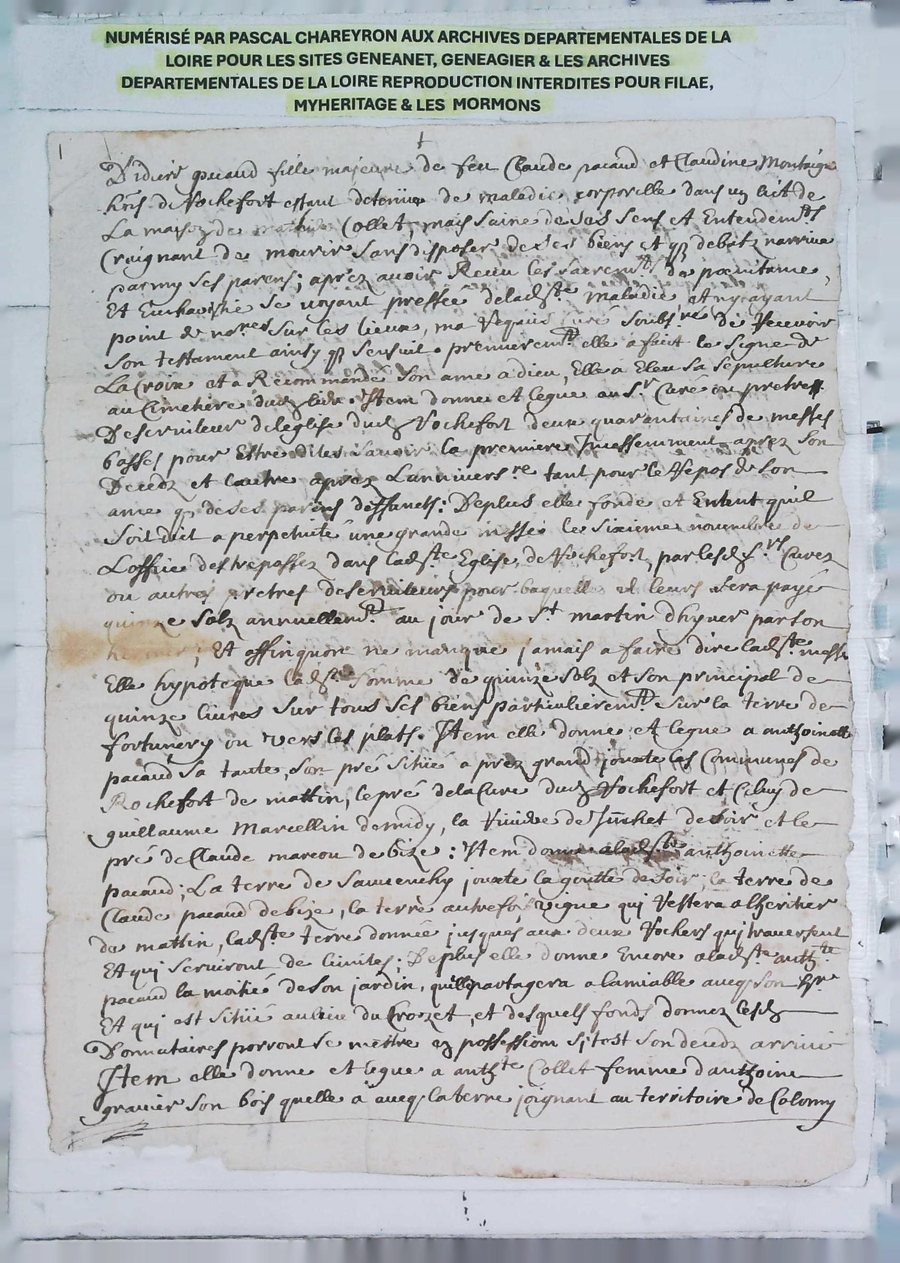 NUMÉRISÉ PAR PASCAL CHAREYRON AUX ARCHIVES DEPARTEMENTALES DE LA
LOIRE POUR LES SITES GENEANET, GENEAGIER & LES ARCHIVES
DEPARTEMENTALES DE LA LOIRE REPRODUCTION INTERDITES POUR FILAE,
MYHERITAGE & LES MORMONS
fille majeure de feu Claude pacaud et Claudine Montaign
de Rochefort estant detenüe de maladie corporelle dans un lict de
La maison de Collet, mais saine de ses sens et Entendemts
Craignant de mourir sans disposer de ses biens et q debatz narrive
parmy ses parens; aprez avoir Receu les sacremts de pœnitance,
Et Eucharistie se voyant pressée deladste maladie Et ny ayant
point de nores sur les lieux, ma Requis curé soubsne de Recevoir
son testament ainsy q sensuit. premieremt elle a faict le signe de
La Croix et a Recommandé son ame a dieu, Elle a Eleu sa sepulture
au Cimetiere dud lieu. Item donne et legue au Sr Curé ou pretre
Deserviteur deleglise dud Rochefort deux quarantaines de messes
basses pour estre dites savoir la premiere Incessemment aprez son
Decedz et lautre aprez Lanniversre tant pour le Repos de son
ame q de ses parens deffunets: Deplus elle fonde et Entent quil
soit dit a perpetuité une grande messe le sixieme novembre de
Loffice des trepassez dans ladste Eglise de Rochefort, par lesd Srs Curez
ou autres pretres deserviteurs pour laquelle il leurs sera payé
quinze solz annuellemt au jour de St martin dhyver par son
heritier; Et affinquon ne manque jamais a faire dire ladste messe
Elle hypoteque ladste somme de quinze solz et son principal de
quinze livres sur tous ses biens particulieremt sur la terre de
fortunery ou vers les plats. Item elle donne et legue a anthoinette
pacaud sa tante, son pré sitüé a prez grand jouxte les Communes de
Rochefort de mattin, le pré dela Cure dud Rochefort et Celuy de
guillaume Marcellin demidy, la Riviere de de soir et le
pré de Claude marcou de bize: Item donne aladste anthoinette
pacaud, La terre de jouxte la goutte de soir, la terre de
Claude pacaud de bize, la terre autrefois vigne qui Restera a lheritier
de mattin, ladste terre donnée jusques aux deux Rochers qui traversent
Et qui serviront de limites; Deplus elle donne Encore aladste anthte
pacaud la moitié de son jardin, quelle partagera a lamiable avec son hr
Et qui est sitüé aulieu du Crozet, et desquels fonds donnez lesd
Donnataires porront se mettre en possession sitost son decedz arrivé
Item elle donne et legue a anthte Collet femme danthoine
gravier son bois quelle à avec la terre joignant au territoire de Colomy